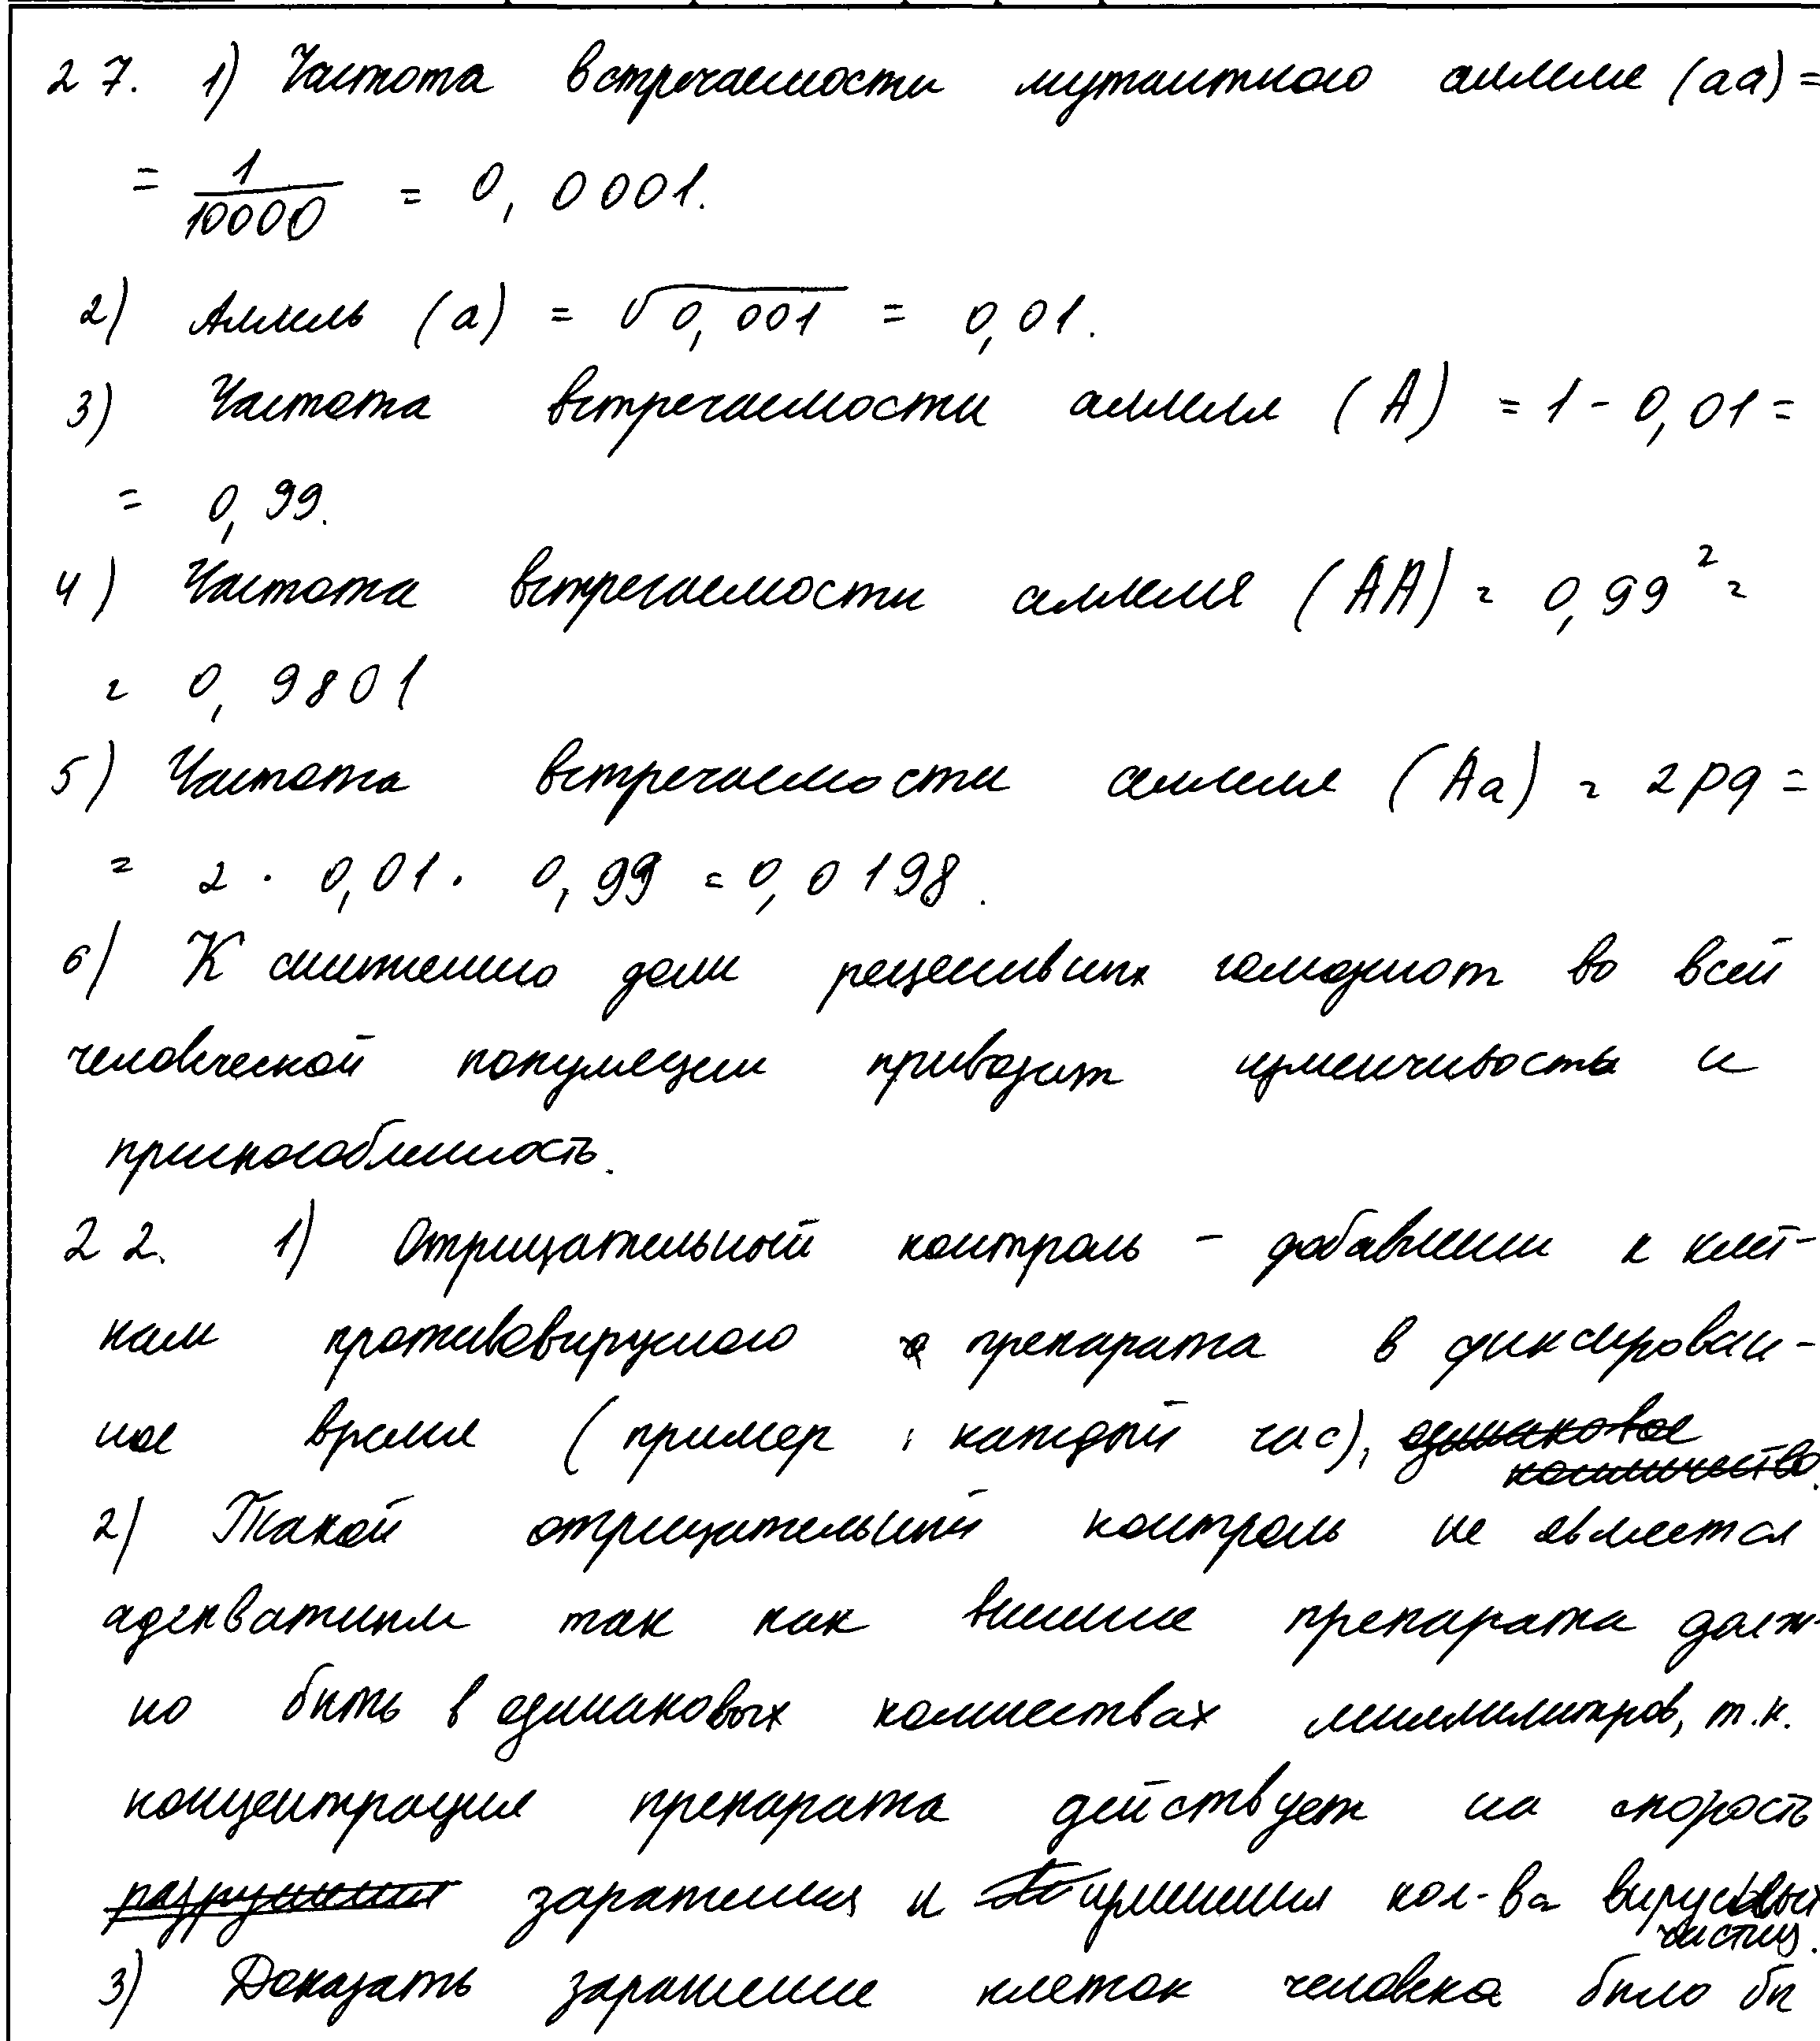 27. 1) Частота встречаемости мутантного аллеля (aa) =
= 1/10000 = 0,0001.
2) Аллель (a) = √0,001 = 0,01.
3) Частота встречаемости аллеля (A) = 1 - 0,01 =
= 0,99.
4) Частота встречаемости аллеля (AA) = 0,99² =
= 0,9801
5) Частота встречаемости аллеля (Aa) = 2pq =
= 2 · 0,01 · 0,99 = 0,0198.
6) К снижению доли рецессивных гомозигот во всей
человеческой популяции приводит изменчивость и
приспособленность.
22. 1) Отрицательный контроль - добавление к клет-
кам противовирусного препарата в фиксирован-
ное время (пример: каждый час), одинаковое
количество.
2) Такой отрицательный контроль не является
адекватным так как внесение препарата долж-
но быть в одинаковых количествах миллилитров, т.к.
концентрация препарата действует на скорость
разрушения заражения и изменения кол-ва вирусных
частиц.
3) Доказать заражение клеток человека было бы